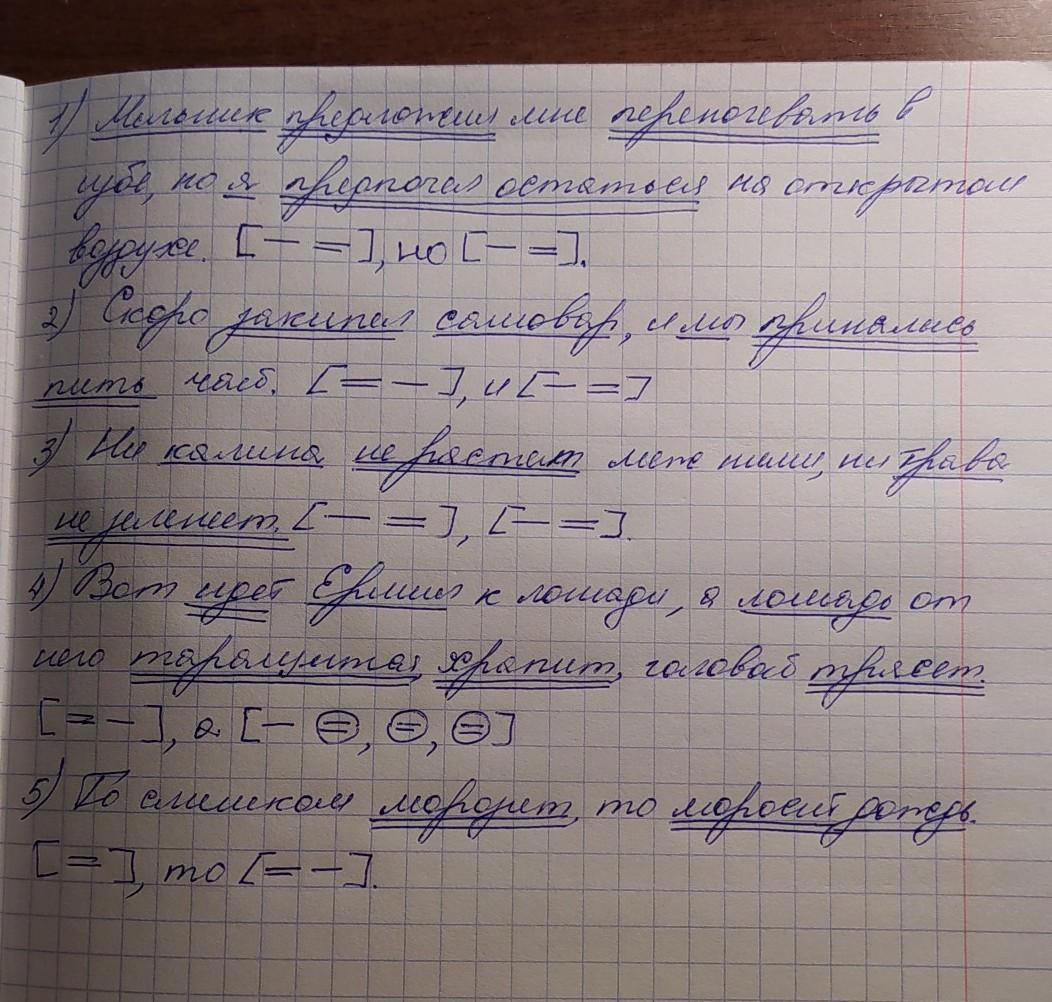 1) Мельник предложил мне переночевать в
избе, но я предпочел остаться на открытом
воздухе. [— =], но [— =].
2) Скоро закипел самовар, и мы принялись
пить чай. [= —], и [— =]
3) Ни калина не растет меж ними, ни трава
не зеленеет. [— =], [— =].
4) Вот идет Ермил к лошади, а лошадь от
него таращится, храпит, головой трясет.
[= —], а [— =, =, =]
5) То слишком морозит, то моросит дождь.
[=], то [= —].